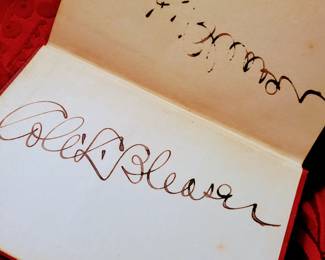 Cole L. Blease